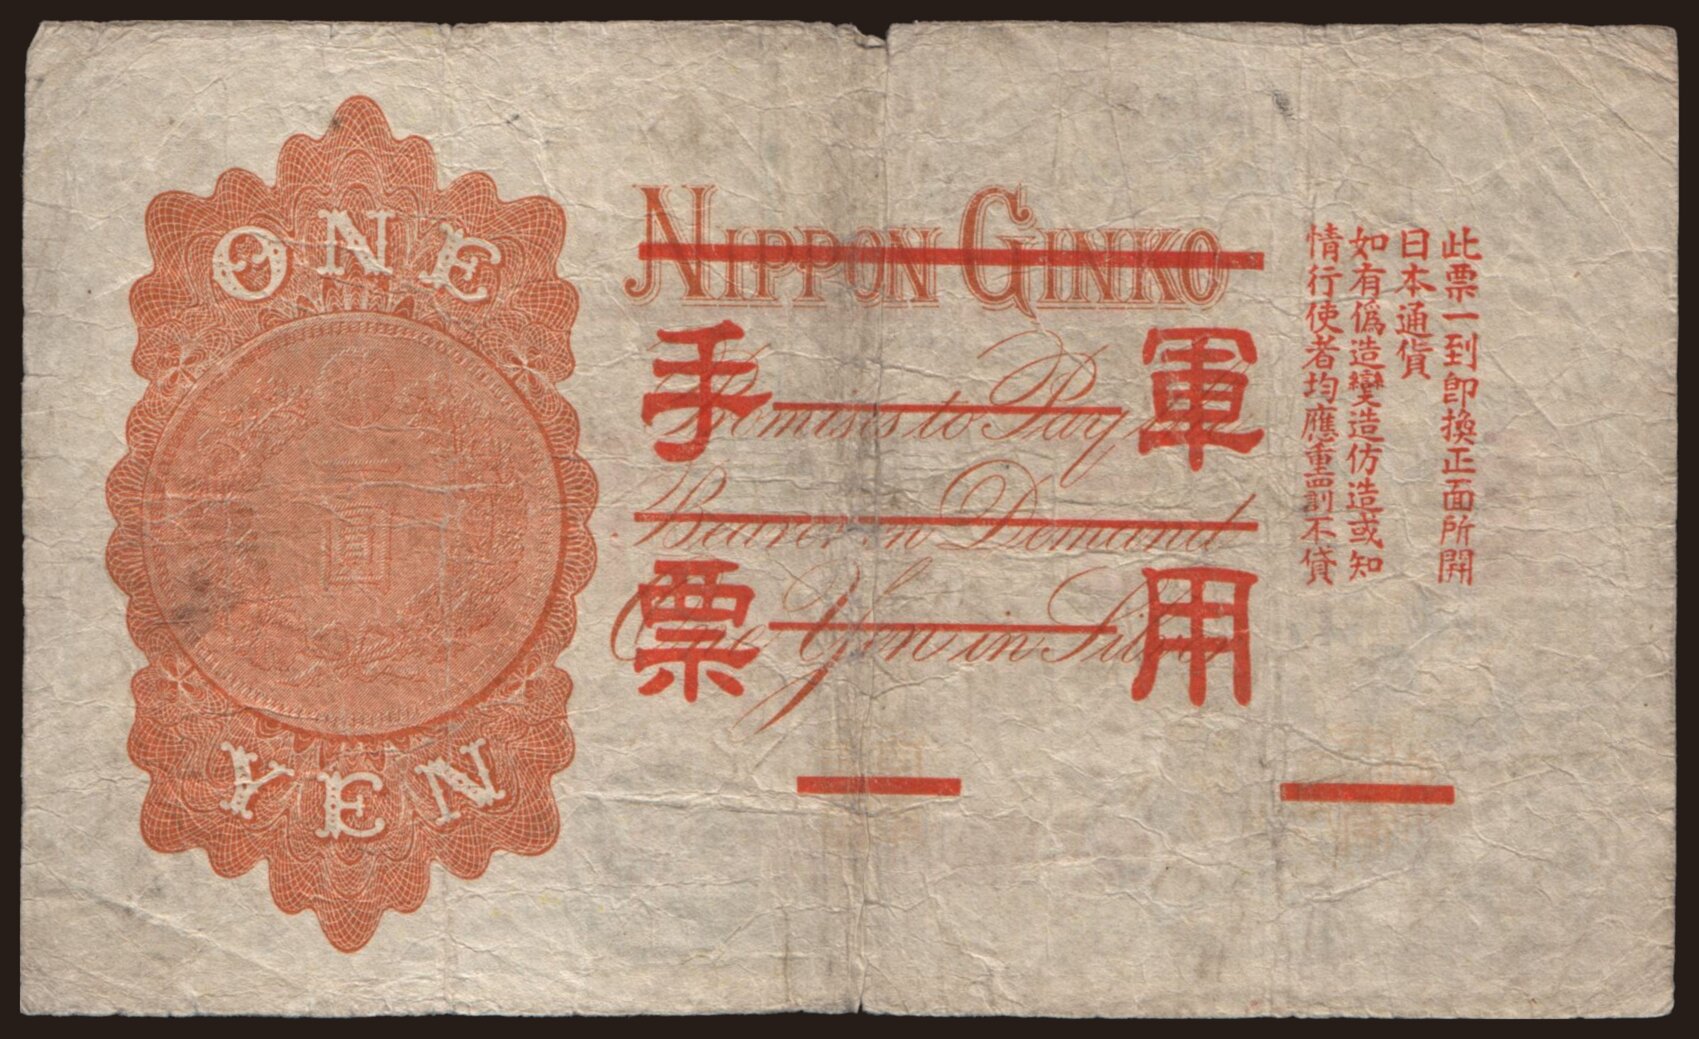 ONE
一圓
YEN
NIPPON GINKO
Promises to Pay the
Bearer on Demand
One Yen in Silver
軍用
手票
此票一到即換正面所開
日本通貨
如有偽造變造仿造或知
情行使者均應重罰不貸